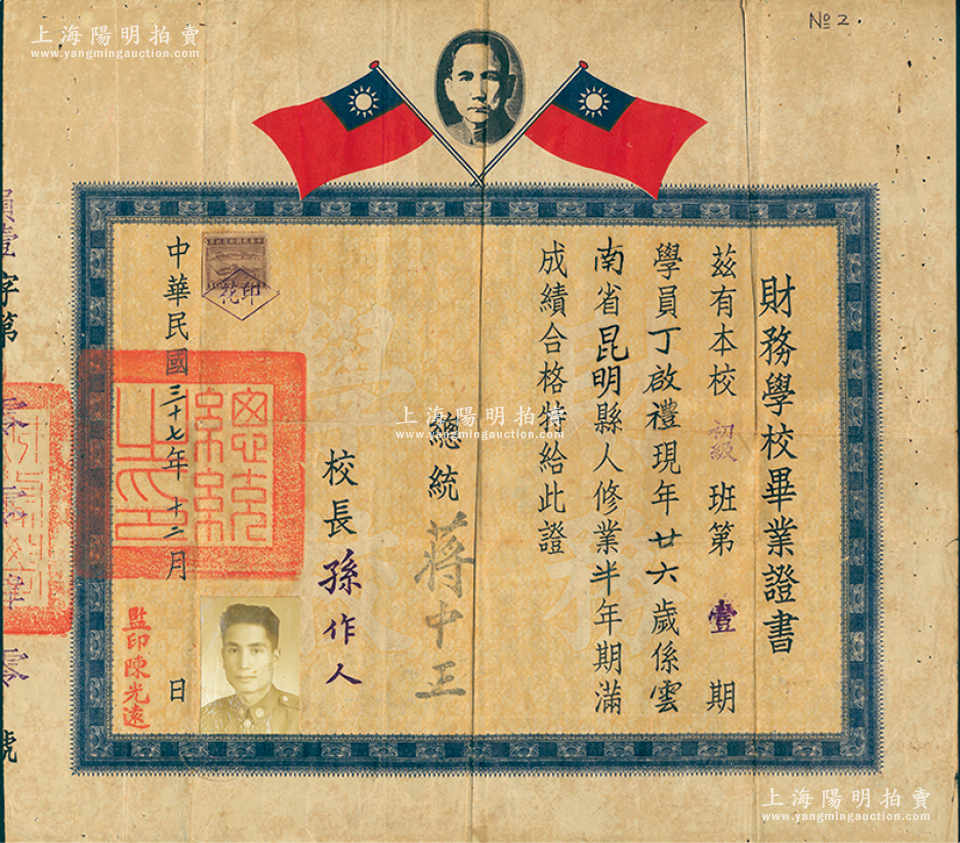 上海陽明拍賣
www.yangmingauction.com
№ 2.
財務學校畢業證書
茲有本校初級班第壹期
學員丁啟禮現年廿六歲係雲
南省昆明縣人修業半年期滿
成績合格特給此證
總統蔣中正
校長孫作人
印花
中華民國三十七年十二月 日
總統之印
監印陳光遠
字第
零
號
上海陽明拍賣
www.yangmingauction.com
上海陽明拍賣
www.yangmingauction.com